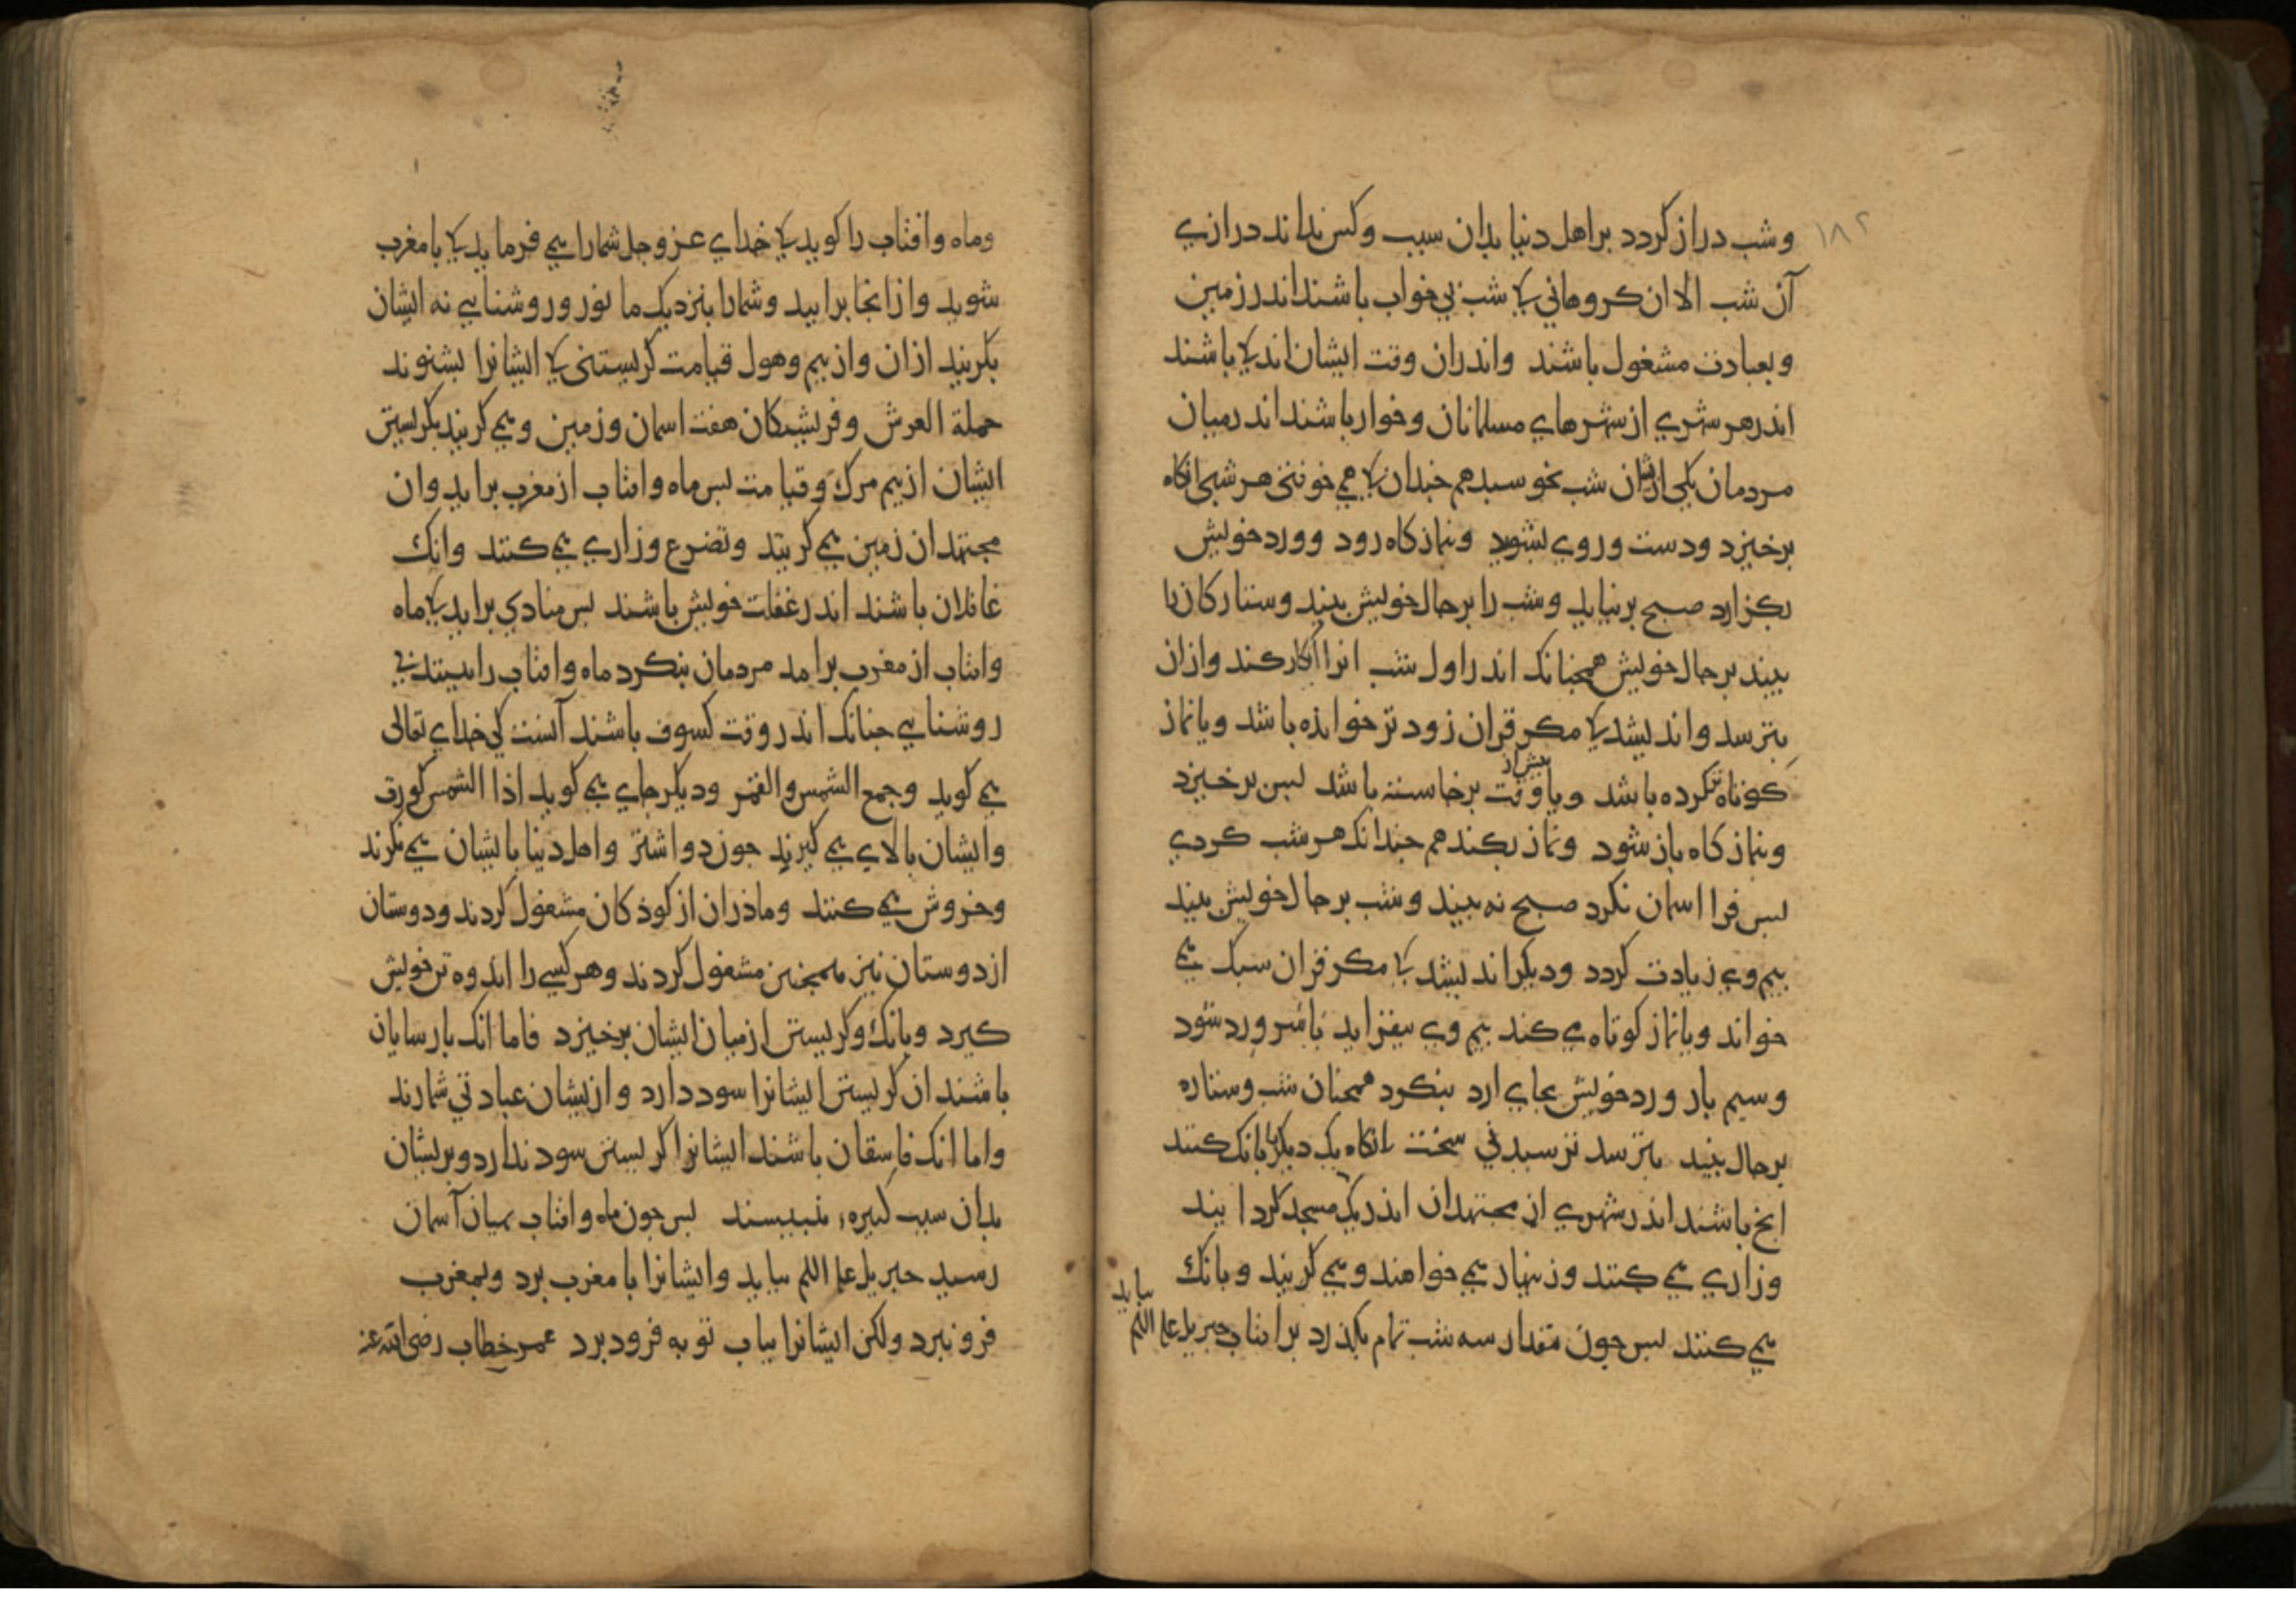 ١٨٢
و شب دراز کردد بر اهل دنیا بدان سبب و کس نداند درازی
آن شب الا ان کروهانی که شب بی خواب باشند اندر زمین
و بعبادت مشغول باشند واندران وقت ایشان اندک باشند
اندر هر شهری از شهرهای مسلمانان و خوار باشند اندر میان
مردمان یکی ازیشان شب نخوسبد هم جندان که همی خوفتی هر شبی انکاه
برخیزد و دست و روی بشوید و بنماز کاه رود و ورد خویش
بکزارد صبح برنیاید و شب را بر حال خویش بیند و ستارکان را
بیند بر حال خویش همجنانک اندر اول شب انرا انکار کند و ازان
بترسد و اندیشد که مکر قران زودتر خوانده باشد و یا نماز
کوتاه تر کرده باشد و یا بیش از وقت برخاسته باشد بس برخیزد
و بنماز کاه باز شود و نماز بکند هم جندانک هر شب کردی
بس فرا اسمان نکرد صبح نه بیند و شب بر حال خویش بیند
بیم وی زیادت کردد و دیکر اندیشد که مکر قران سبک می
خواند و یا نماز کوتاه می کند بیم وی بیفزاید باسر ورد شود
و سیم بار ورد خویش بجای ارد بنکرد همجنان شب و ستاره
بر حال بیند بترسد ترسیدنی سخت انکاه یک دیکر را بانک کنند
انج باشند اندر شهری از مجتهدان اندر یک مسجد کرد ایند
و زاری می کنند و زنهار می خواهند و می کریند و بانک
می کنند بس جون مقدار سه شب تمام بکذرد برافتاب جبریل علیه السلم بیاید
وماه وافتاب را کوید که خدای عز وجل شما را می فرماید که با مغرب
شوید و ازانجا برایید و شما را بنزدیک ما نور و روشنایی نه ایشان
بکریند ازان و از بیم و هول قیامت کریستنی که ایشانرا بشنوند
حملة العرش و فریشتکان هفت اسمان و زمین و می کریند بکریستن
ایشان از بیم مرک و قیامت بس ماه و افتاب از مغرب براید و ان
مجتهدان زمین می کریند و تضرع و زاری می کنند و انک
غافلان باشند اندر غفلت خویش باشند بس منادی براید که ماه
وافتاب از مغرب برامد مردمان بنکرد ماه و افتاب را بینند بی
روشنایی جنانک اندر وقت کسوف باشند آنست کی خدای تعالی
می کوید وجمع الشمس والقمر و دیکر جای می کوید اذا الشمس کورت
وایشان بالای می کیرند جون دو اشتر و اهل دنیا بایشان می نکرند
و خروش می کنند و ماذران از کوذکان مشغول کردند و دوستان
از دوستان نیز همجنین مشغول کردند و هر کسی را اندوه تن خویش
کیرد و بانک و کریستن از میان ایشان برخیزد فاما انک بارسایان
باشند ان کریستن ایشانرا سود دارد و ازیشان عبادتی شمارند
و اما انک فاسقان باشند ایشانرا کریستن سود ندارد و بریشان
بدان سبب کبیره بنبیسند بس جون ماه و افتاب بمیان آسمان
رسید جبریل علیه السلم بیاید و ایشانرا با مغرب برد و بمغرب
فرو نبرد ولکن ایشانرا بباب توبه فرود برد عمر خطاب رضی الله عنه